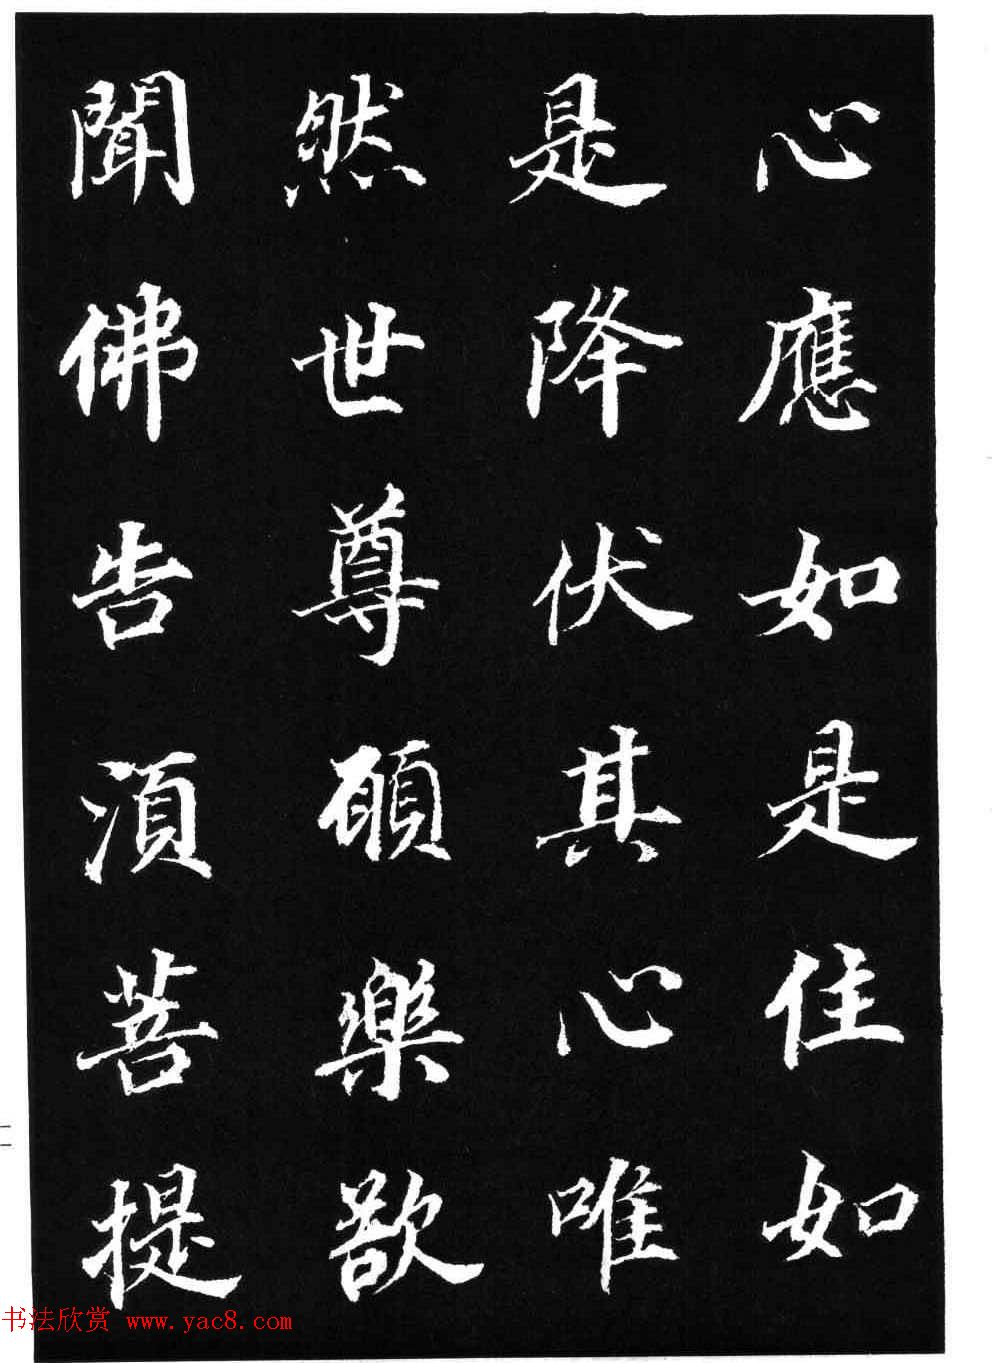 心應如是住如
是降伏其心唯
然世尊願樂欲
聞佛告須菩提
二
书法欣赏 www.yac8.com